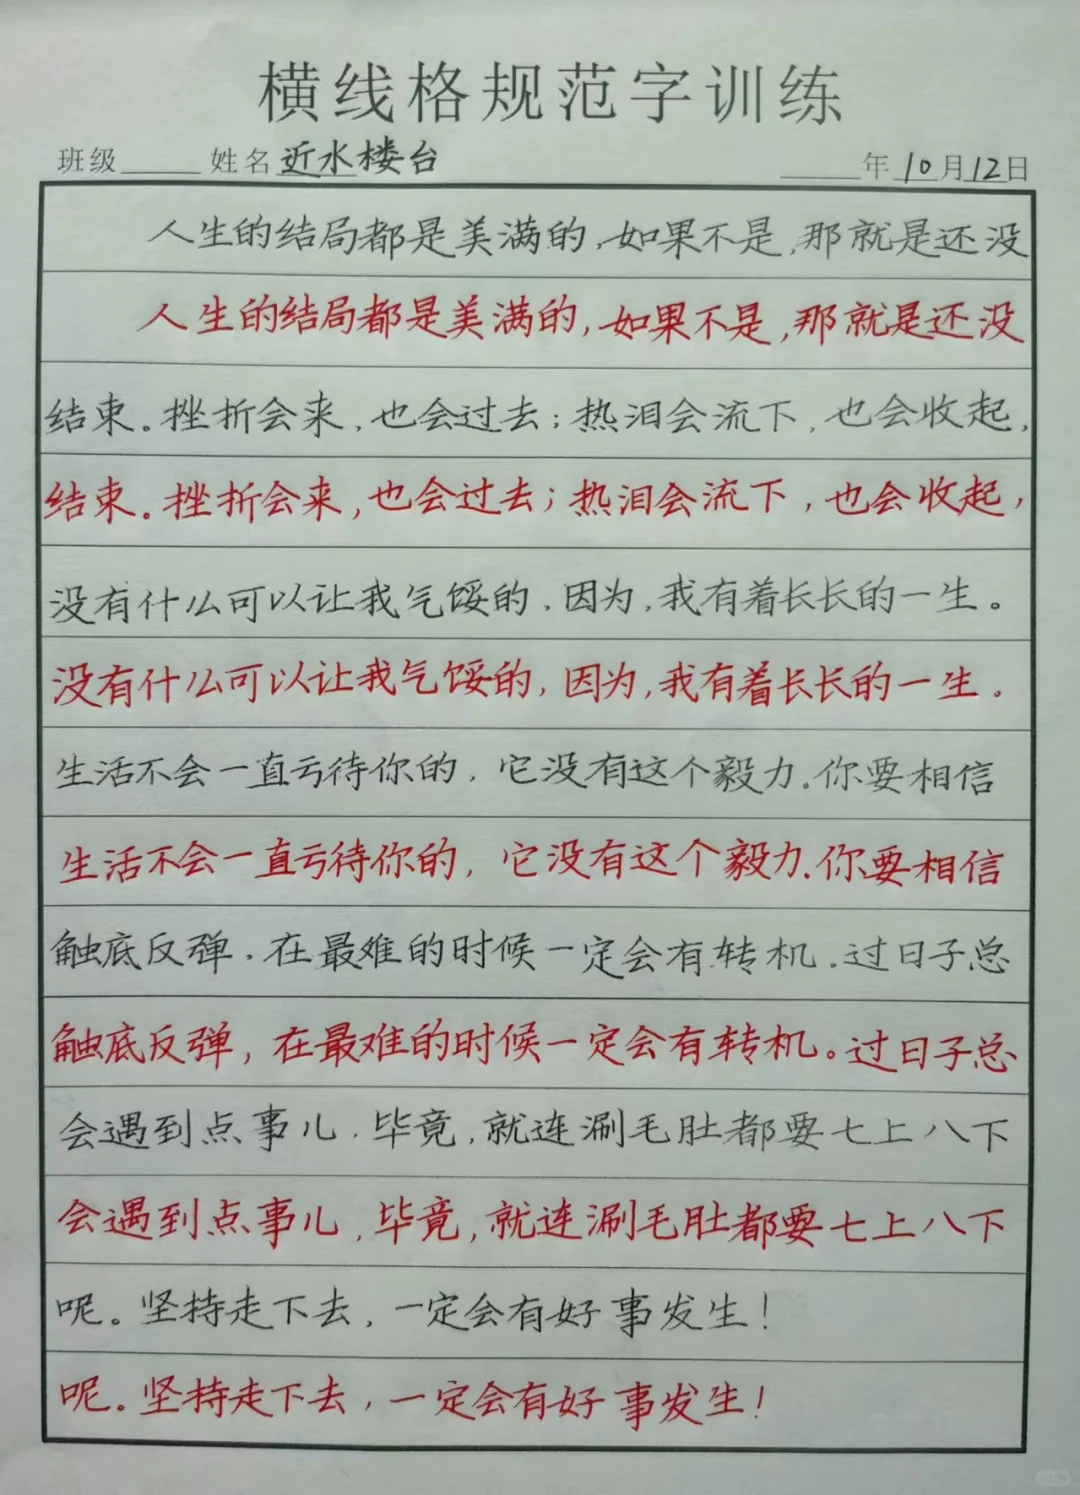 横线格规范字训练
班级 姓名 近水楼台 年 10月12日
人生的结局都是美满的,如果不是,那就是还没
人生的结局都是美满的,如果不是,那就是还没
结束。挫折会来,也会过去;热泪会流下,也会收起,
结束。挫折会来,也会过去;热泪会流下,也会收起,
没有什么可以让我气馁的,因为,我有着长长的一生。
没有什么可以让我气馁的,因为,我有着长长的一生。
生活不会一直亏待你的,它没有这个毅力.你要相信
生活不会一直亏待你的,它没有这个毅力.你要相信
触底反弹,在最难的时候一定会有转机.过日子总
触底反弹,在最难的时候一定会有转机。过日子总
会遇到点事儿,毕竟,就连涮毛肚都要七上八下
会遇到点事儿,毕竟,就连涮毛肚都要七上八下
呢。坚持走下去,一定会有好事发生!
呢。坚持走下去,一定会有好事发生!